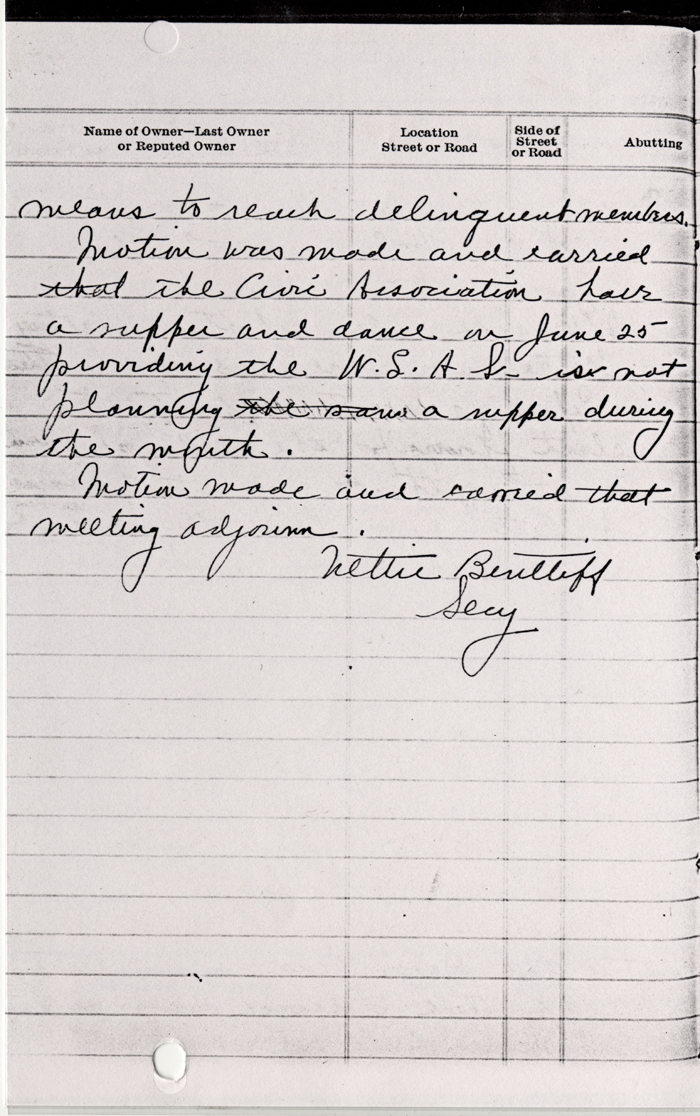 Name of Owner—Last Owner
or Reputed Owner
Location
Street or Road
Side of
Street
or Road
Abutting
means to reach delinquent members.
Motion was made and carried
that the Civic Association have
a supper and dance on June 25
providing the W. S. A. S. is not
planning the same a supper during
the month.
Motion made and carried that
meeting adjourn.
Nettie Bentleff
Secy